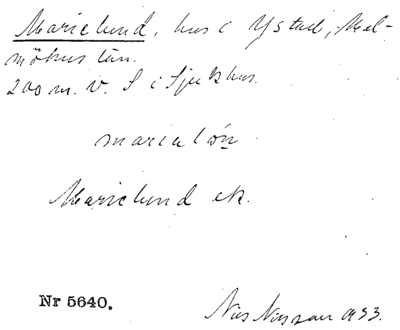 Marielund, hus i Ystad, Mal-
möhus län.
200 m. v. S i Sjukhus.
marialón
Marielund ek.
Nr 5640.
Nils Nilsson 1933.